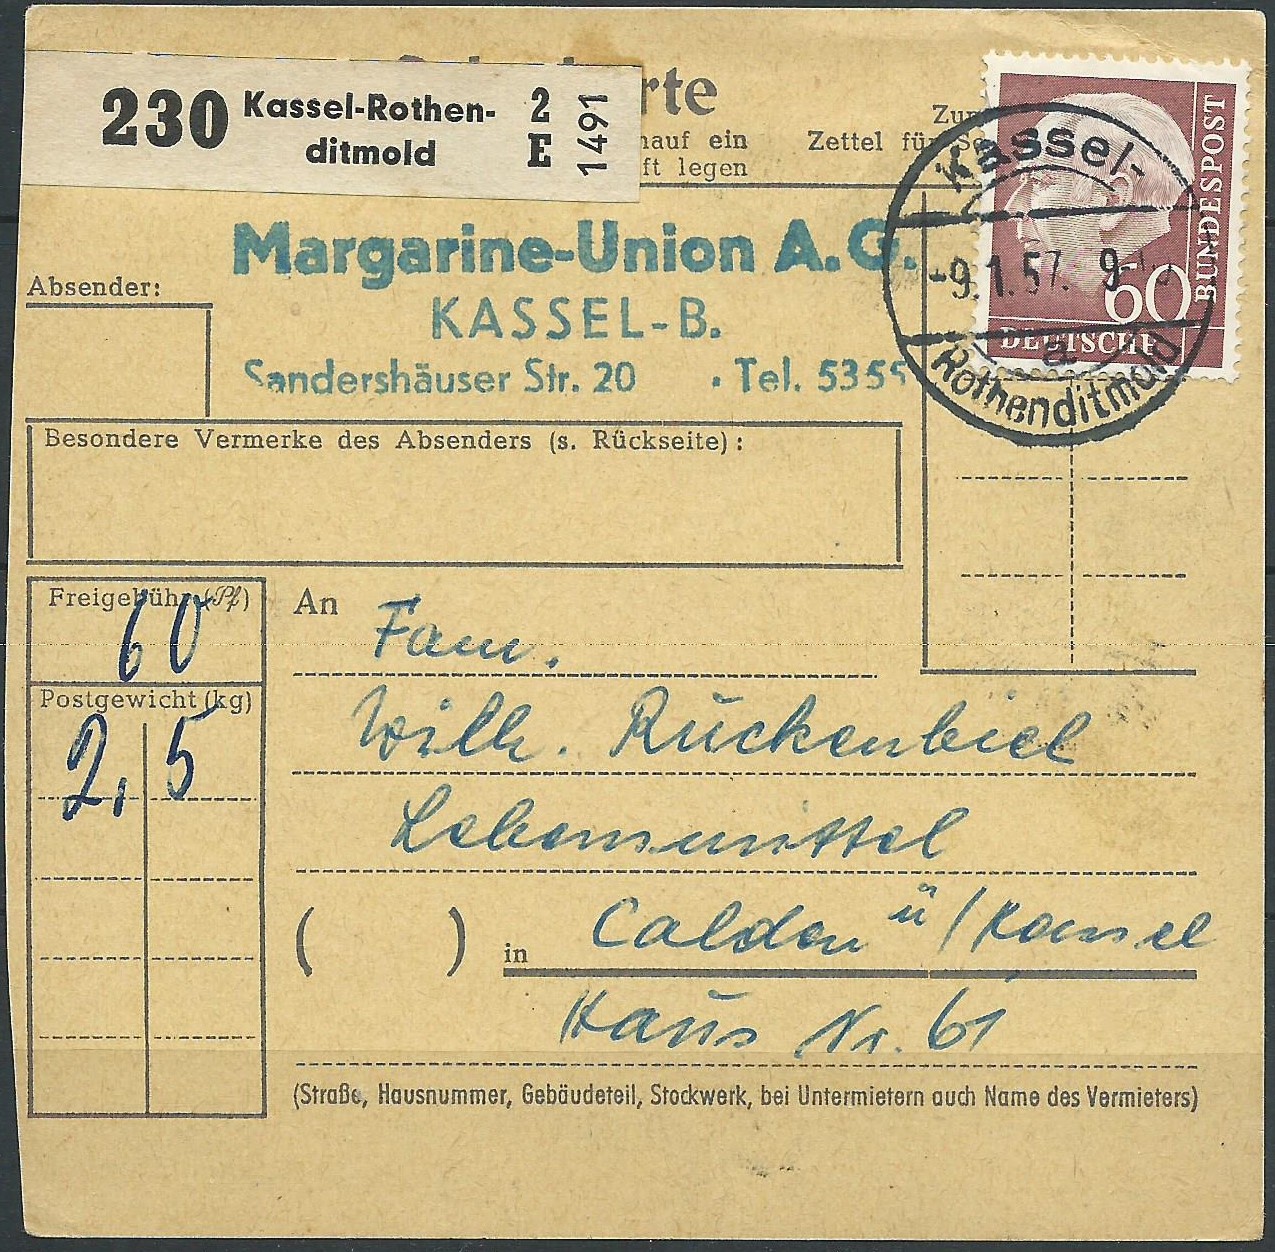 230 Kassel-Rothen-
ditmold
2
E
1491
rte
auf ein
ft legen
Zettel für
Margarine-Union A.G.
KASSEL-B.
Sandershäuser Str. 20 · Tel. 5355
Absender:
Kassel-
-9.1.57. 9
a
Rothenditmold
60
DEUTSCHE
BUNDESPOST
Besondere Vermerke des Absenders (s. Rückseite):
Freigebühr (Pf)
60
Postgewicht (kg)
2,5
An Fam.
Wilh. Rückenbiel
Lebensmittel
( ) in Calden ü/Kassel
Haus Nr. 61
(Straße, Hausnummer, Gebäudeteil, Stockwerk, bei Untermietern auch Name des Vermieters)